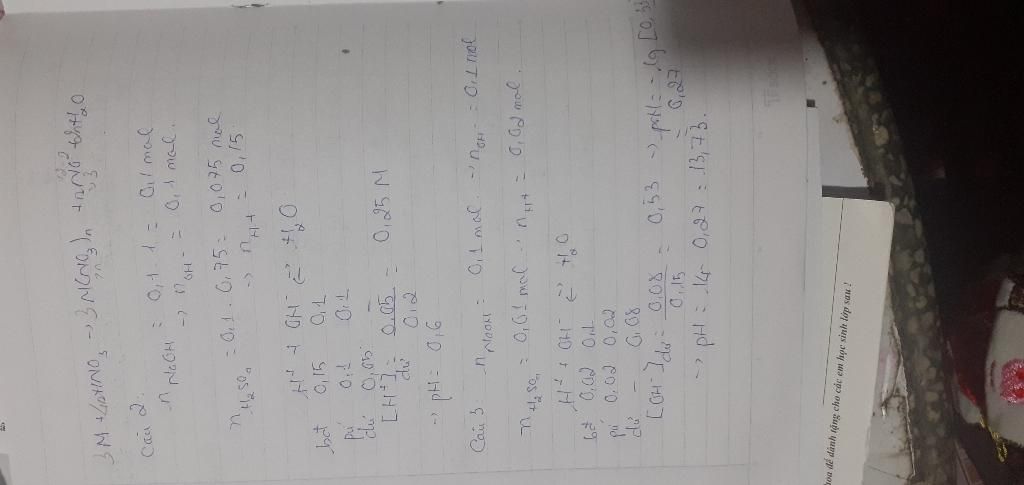 3M + 4nHNO3 → 3M(NO3)n + nNO + 2nH2O
Câu 2.
nNaOH = 0,1 . 1 = 0,1 mol
→ nOH- = 0,1 mol.
nH2SO4 = 0,1 . 0,75 = 0,075 mol
→ nH+ = 0,15
H+ + OH- ⇌ H2O
bđ 0,15 0,1
pứ 0,1 0,1
dư 0,05 -
[H+]dư = 0,05 / 0,2 = 0,25 M
→ pH = 0,6
Câu 3: nNaOH = 0,1 mol. → nOH- = 0,1 mol
nH2SO4 = 0,01 mol → nH+ = 0,02 mol.
H+ + OH- ⇌ H2O
bđ 0,02 0,1
pứ 0,02 0,02
dư - 0,08
[OH-]dư = 0,08 / 0,15 = 0,53 → pOH = -lg [0,53]
= 0,27
→ pH = 14 - 0,27 = 13,73.
hoa để dành tặng cho các em học sinh lớp sau !